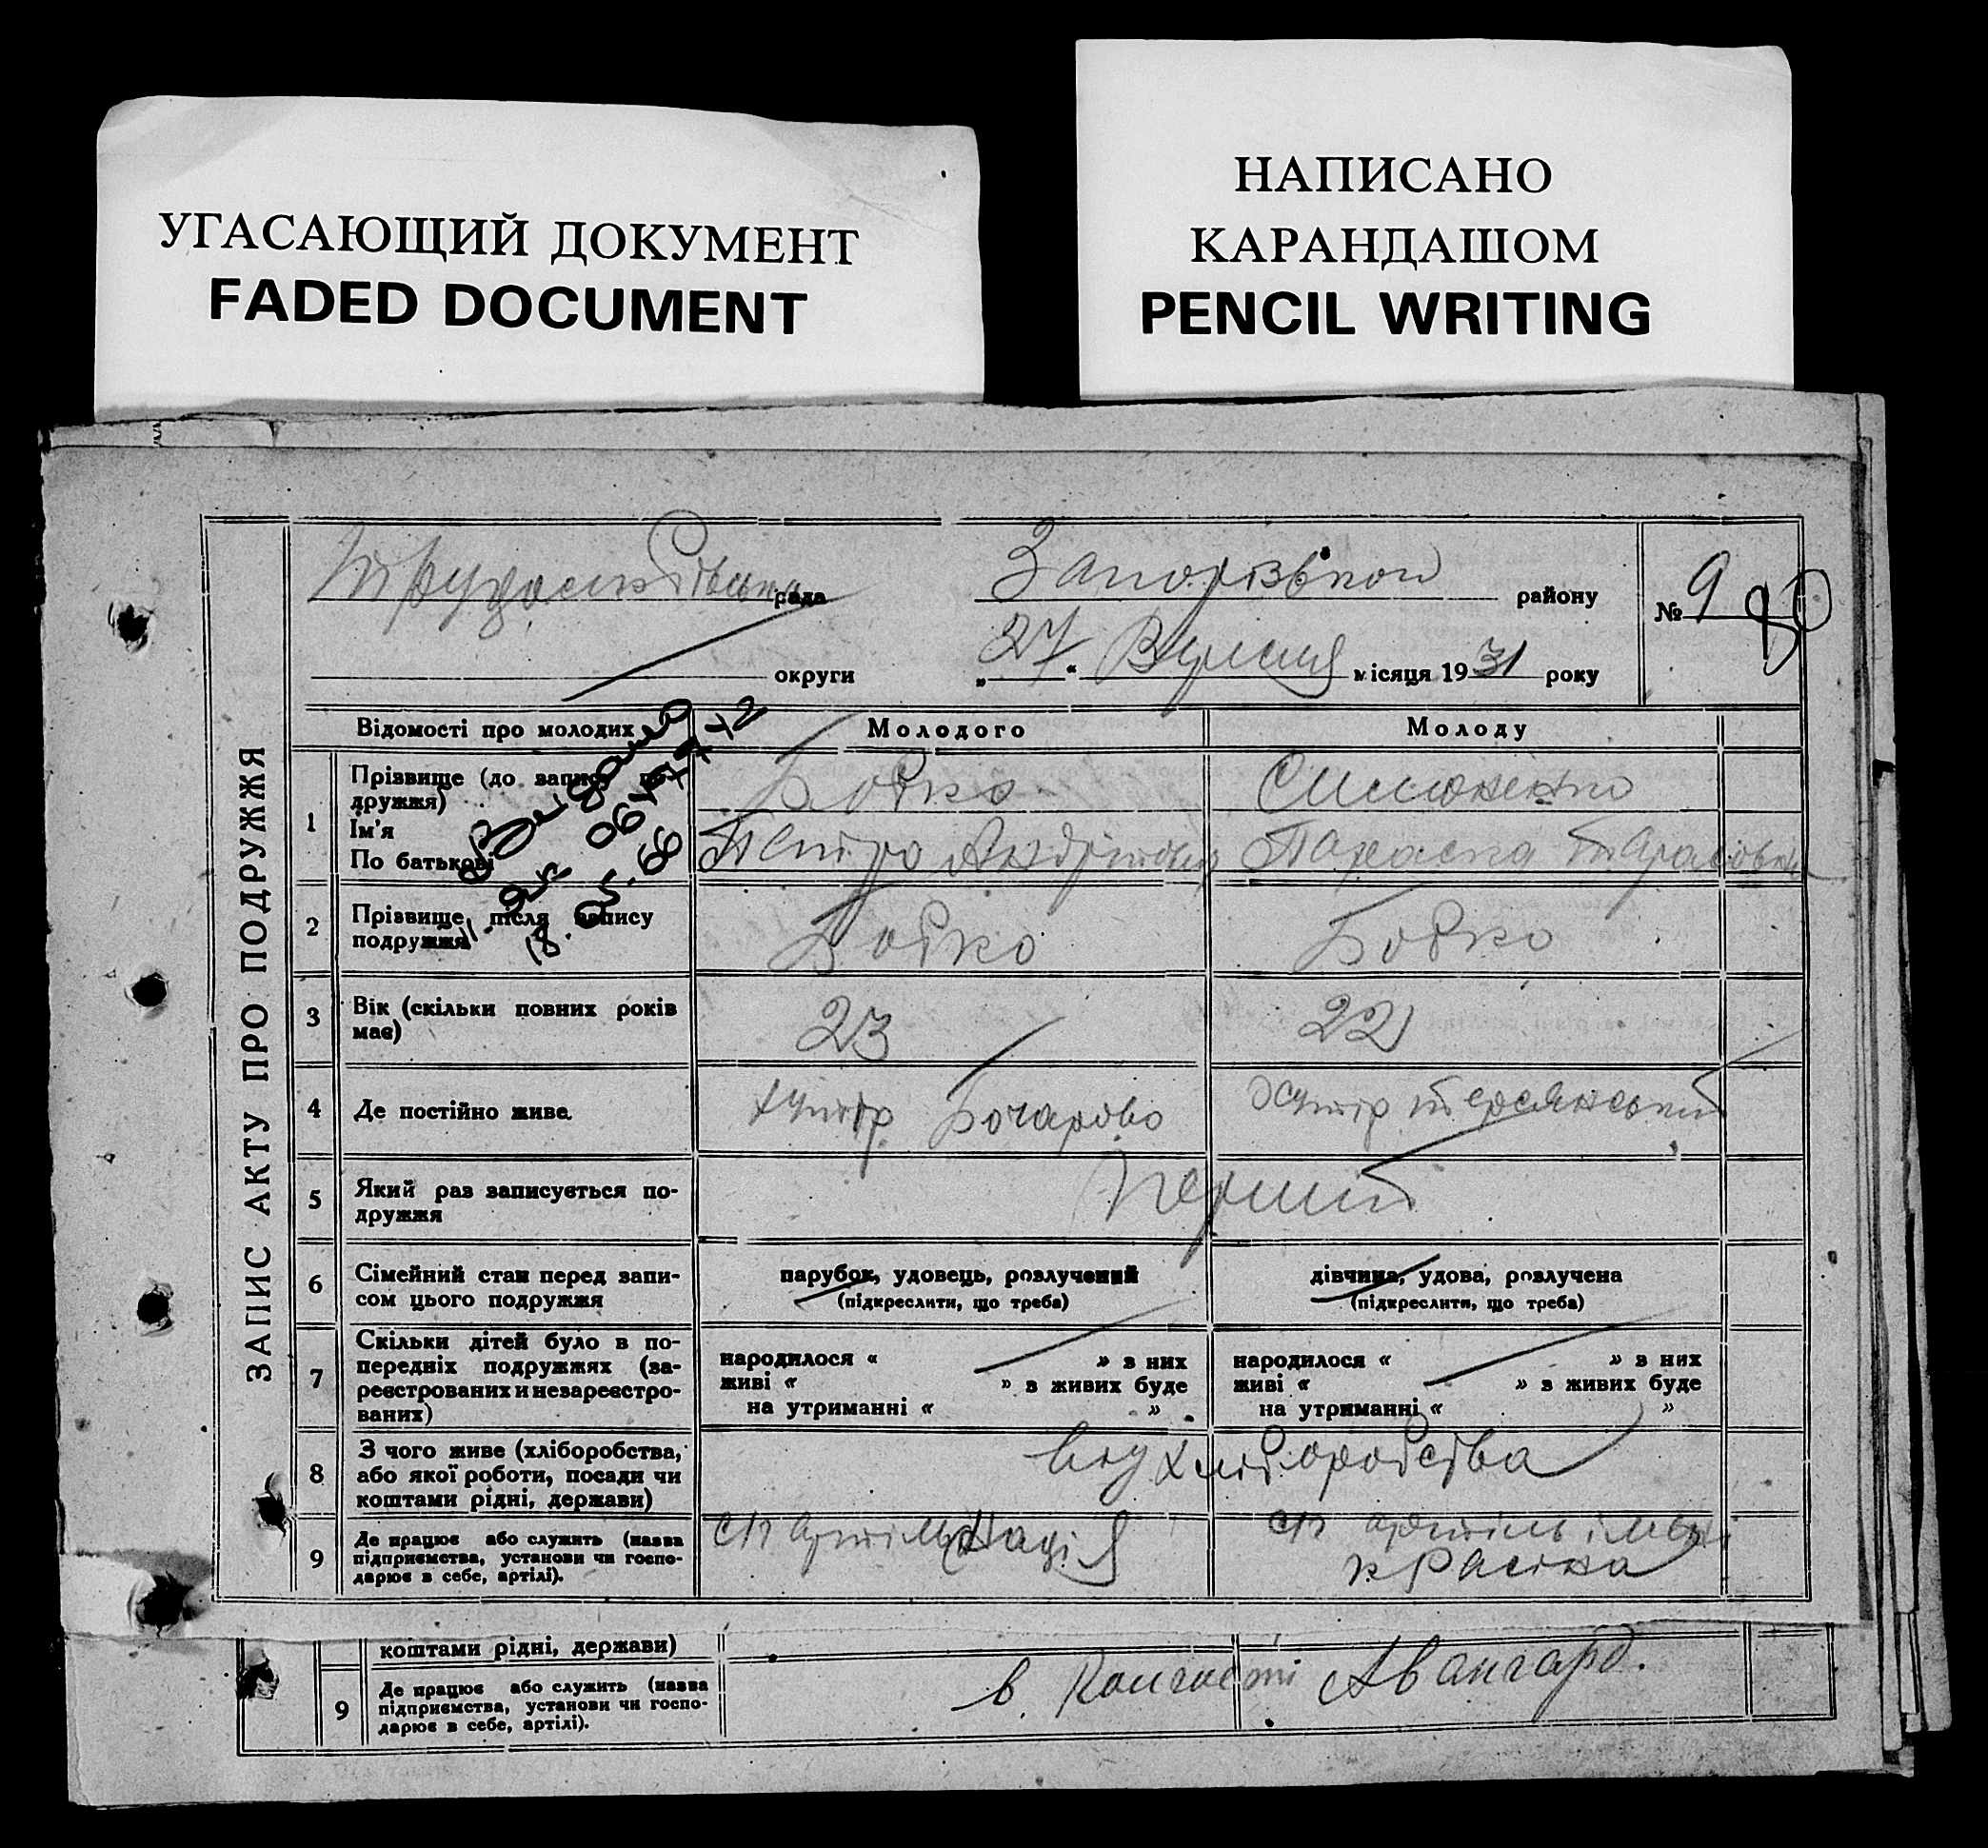 УГАСАЮЩИЙ ДОКУМЕНТ
FADED DOCUMENT
НАПИСАНО
КАРАНДАШОМ
PENCIL WRITING
ЗАПИС АКТУ ПРО ПОДРУЖЖЯ
рада
району
№ 9 80
округи „27“ Вересня місяця 1931 року
Відомості про молодих Молодого Молоду
1 Прізвище (до запису по-
дружжя)
Бобко
Ім'я
По батькові
Петро Андрійович Параска Тарасовна
18.05.66
2 Прізвище після запису
подружжя
Бобко Бобко
3 Вік (скільки повних років
має)
23 22
4 Де постійно живе
хутір Бочарово хутір Терсянський
5 Який раз записується по-
дружжя
Перший
6 Сімейний стан перед запи-
сом цього подружжя
парубок, удовець, розлучений
(підкреслити, що треба)
дівчина, удова, розлучена
(підкреслити, що треба)
7 Скільки дітей було в по-
передніх подружжях (за-
реєстрованих и незареєстро-
ваних)
народилося « » з них
живі « » з живих буде
на утриманні « »
народилося « » з них
живі « » з живих буде
на утриманні « »
8 З чого живе (хліборобства,
або якої роботи, посади чи
коштами рідні, держави)
хліборобства
9 Де працює або служить (назва
підприємства, установи чи госпо-
дарює в себе, артілі).
СП артіль Надія
СП артіль імені
красіна
коштами рідні, держави)
9 Де працює або служить (назва
підприємства, установи чи госпо-
дарює в себе, артілі).
в Колгоспі Авангард.